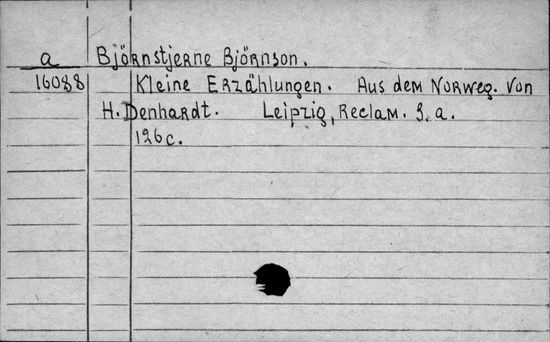 a Björnstjerne Björnson.
16088 Kleine Erzählungen. Aus dem Norweg. Von
H. Denhardt. Leipzig, Reclam. s. a.
126 c.